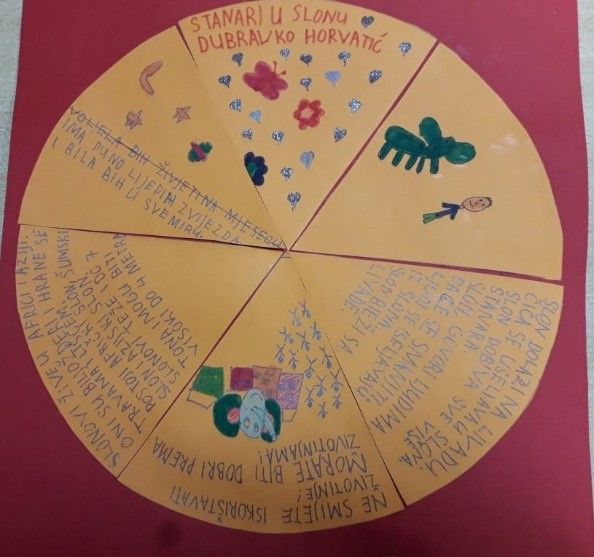 STANARI U SLONU
DUBRAVKO HORVATIĆ
VOLJELA BIH ŽIVJETI NA MJESECU
IMA PUNO LIJEPIH ZVIJEZDA
I BILA BIH U SVEMIRU.
SLON DOLAZI NA LIVADU
SLON SE USELJAVAJU
STANARA. U SLONA
SLON DOBIVA SVE VIŠE
SLON. GOVORI LJUDIMA
DA ĆE SE SVANUTI
LJUDI SE ISELJAVAJU
IZ SLONA
SLON BJEŽI SA
LIVADE.
NE SMIJETE ISKORIŠTAVATI
ŽIVOTINJE!
MORATE BITI DOBRI PREMA
ŽIVOTINJAMA!
SLONOVI ŽIVE U AFRICI I AZIJI.
ONI SU BILJOŽDERI I HRANE SE
TRAVAMA I LIŠĆEM.
POSTOJI AFRIČKI SLON, ŠUMSKI
SLON I AZIJSKI SLON.
SLONOVI TEŽE I DO 7
TONA MOGU BITI
VISOKI DO 4 METRA